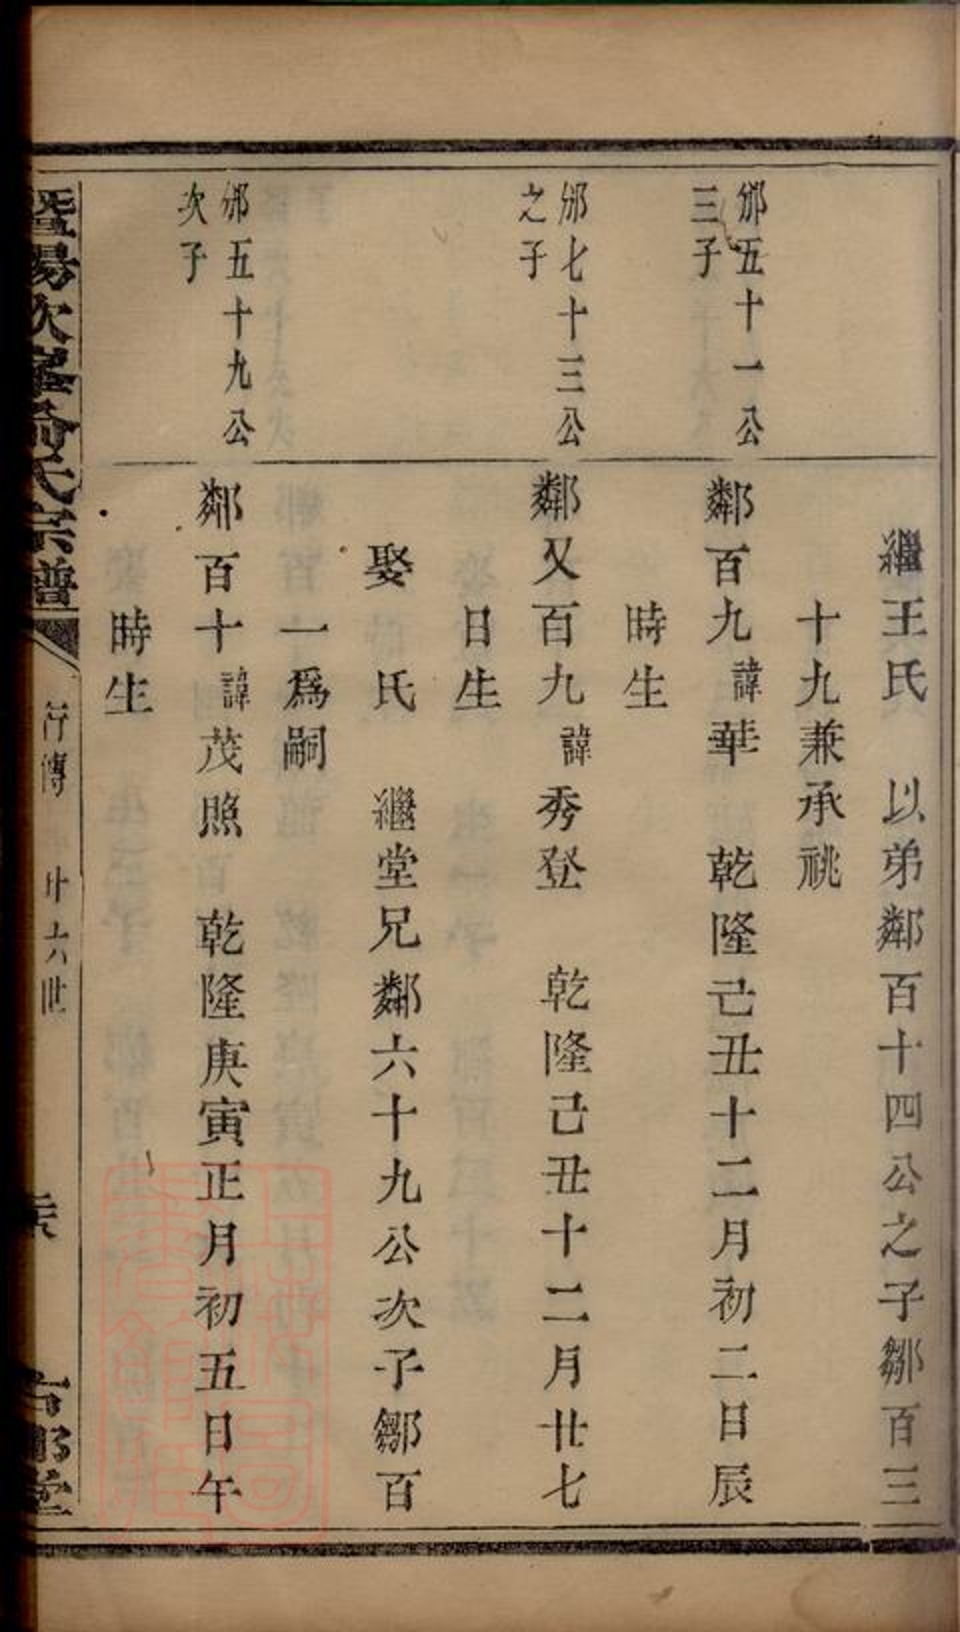 繼王氏　以弟鄰百十四公之子鄒百三
十九兼承祧
邠五十一公
三子
鄰百九諱華　乾隆己丑十二月初二日辰
時生
邠七十三公
之子
鄰又百九諱秀登　乾隆己丑十二月廿七
日生
娶　氏　繼堂兄鄰六十九公次子鄒百
一爲嗣
邠五十九公
次子
鄰百十諱茂照　乾隆庚寅正月初五日午
時生
暨陽次峯俞氏宗譜
行傳　廿六世